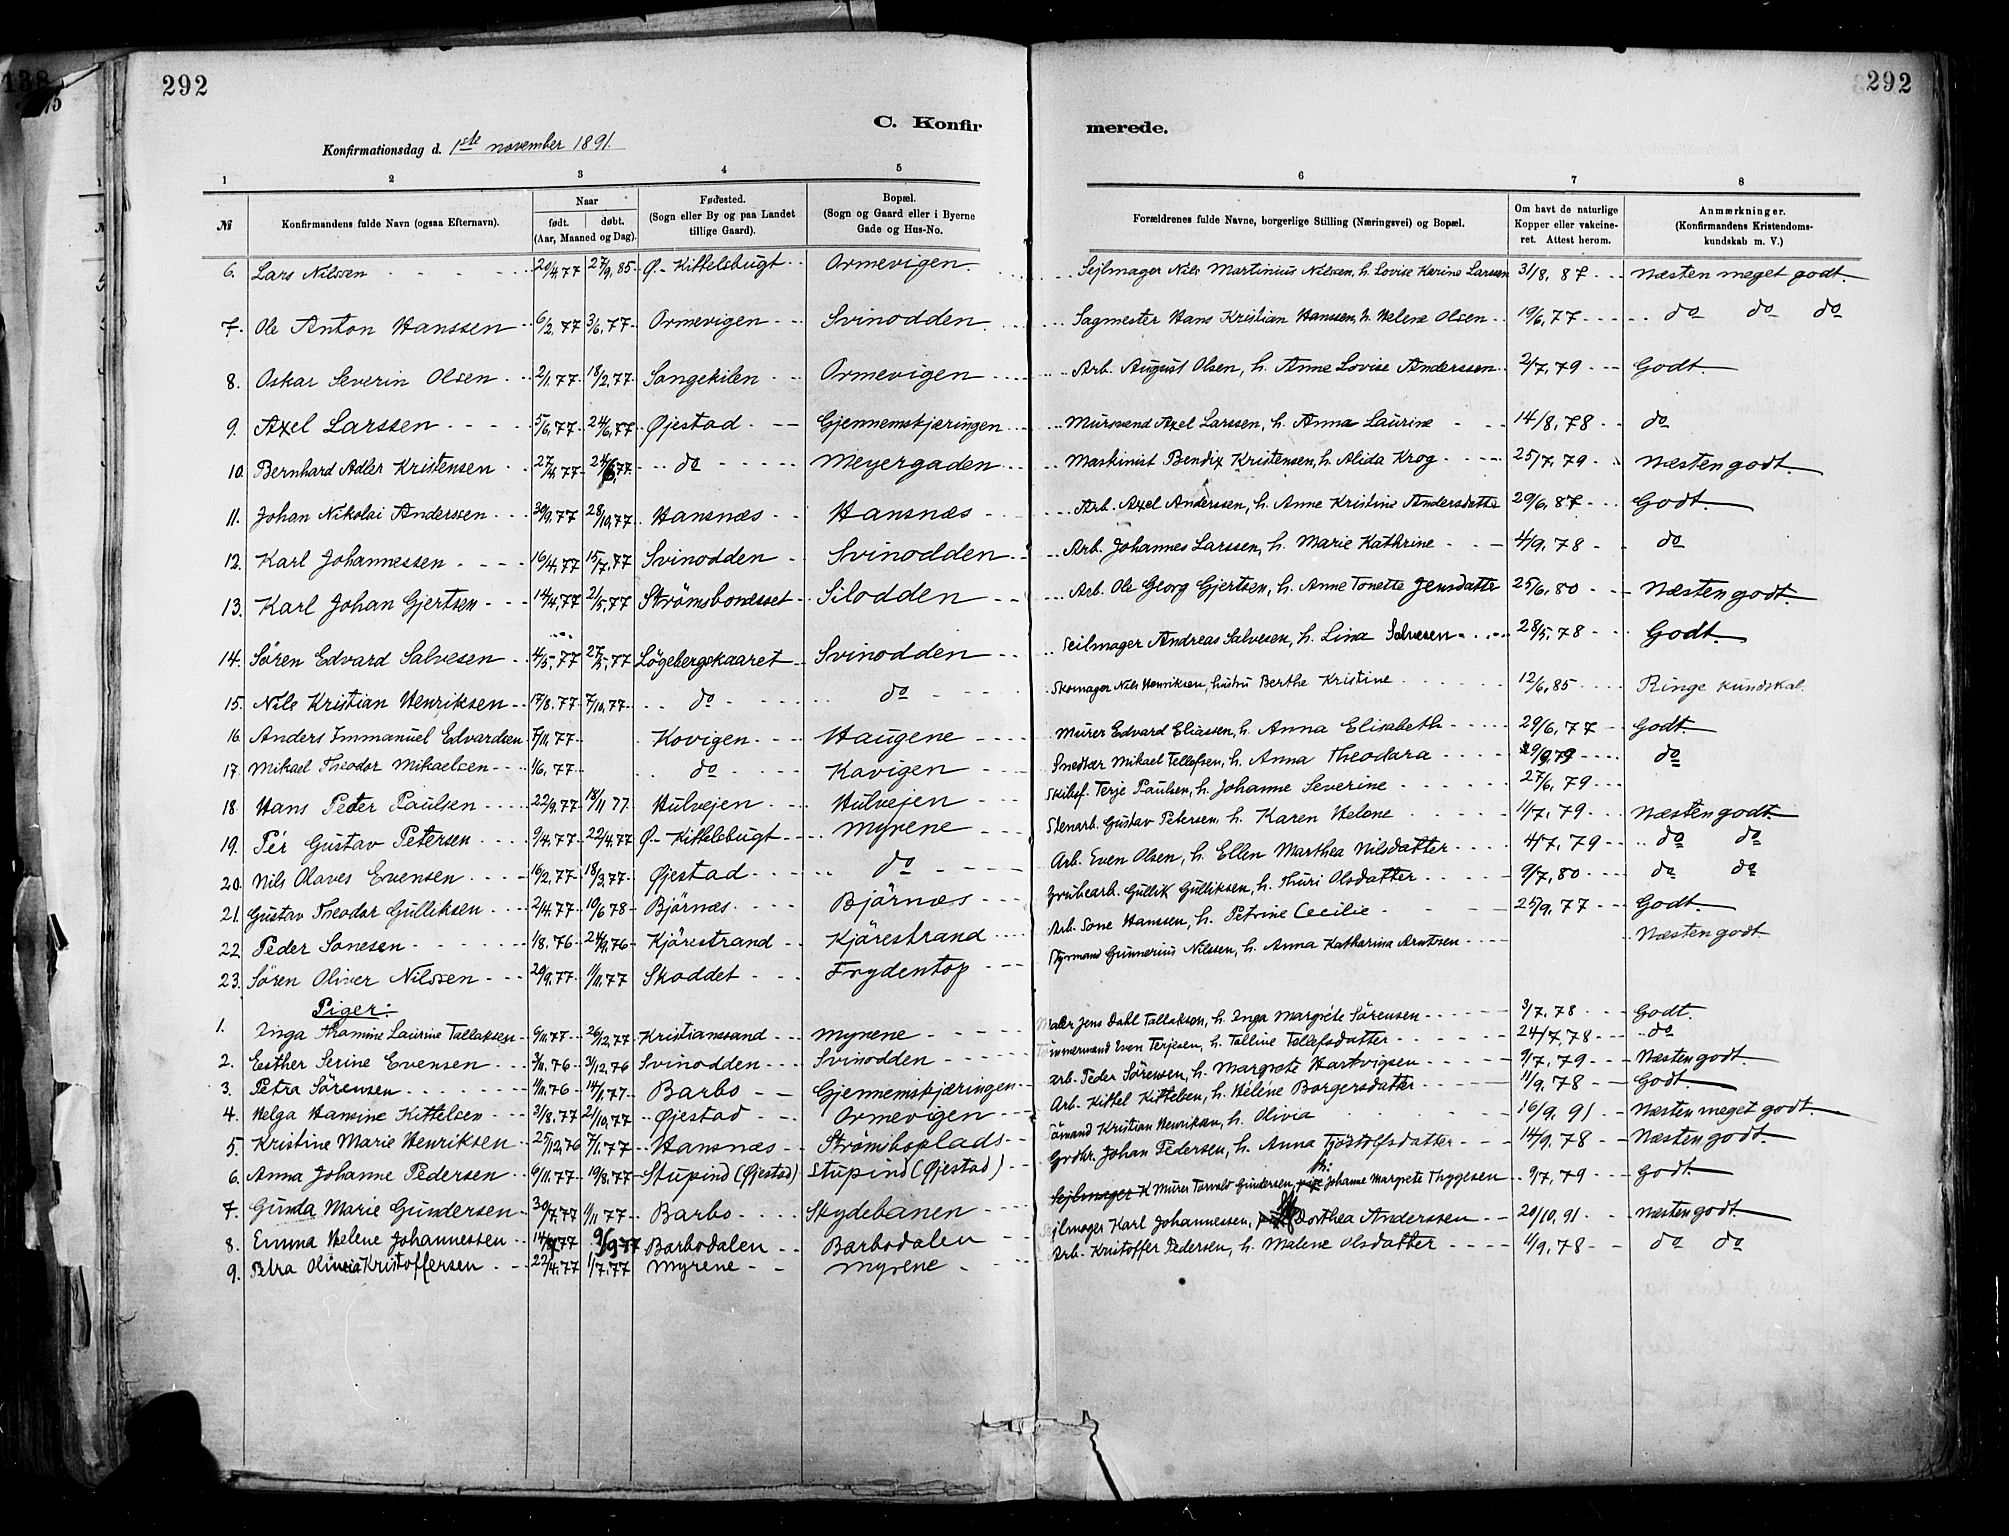 292
292
C. Konfir
merede.
Konfirmationsdag d. 1ste november 1891.
1 2 3 4 5 6 7 8
№ Konfirmandens fulde Navn (ogsaa Efternavn). Naar født. døbt. (Aar, Maaned og Dag). Fødested. (Sogn eller By og paa Landet tillige Gaard). Bopæl. (Sogn og Gaard eller i Byerne Gade og Hus-No. Forældrenes fulde Navne, borgerlige Stilling (Næringsvei) og Bopæl. Om havt de naturlige Kopper eller vakcineret. Attest herom. Anmærkninger. (Konfirmandens Kristendomskundskab m. V.)
6. Lars Nilssen 20/4.77 27/9.85 Ø-Kittelsbugt Ormevigen. Sejlmager Nils Martinius Nilssen, h. Lovise Karine Larssen 31/8.87 Næsten meget godt.
7. Ole Anton Hanssen 6/2.77 3/6.77 Ormevigen Svinodden Sagmester Hans Kristian Hanssen, h. Helene Olsen 19/6.77 do do do
8. Oskar Severin Olsen 2/1.77 18/2.77 Songekilen Ormevigen Arb. August Olsen, h. Anne Lovise Anderssen 2/7.79 Godt.
9. Axel Larssen 5/6.77 24/6.77 Øjestad Gjennemskjæringen Mursvend Axel Larssen, h. Anna Laurine 14/8.78 do
10. Bernhard Adler Kristensen 27/4.77 24/6.77 do Meyergaden Maskinist Bendix Kristensen, h. Alida Krog 25/7.79 Næsten godt.
11. Johan Nikolai Anderssen 30/9.77 28/10.77 Hansnæs Hansnæs Arb. Axel Anderssen, h. Anne Kristine Andersdatte 29/6.87 Godt.
12. Karl Johannessen 16/4.77 15/7.77 Svinodden Svinodden Arb. Johannes Larssen, h. Marie Kathrine 4/9.78 do
13. Karl Johan Gjertsen 14/4.77 21/5.77 Strømsbonesset Silodden Arb. Ole Georg Gjertsen, h. Anne Tonette Jensdatte 25/6.80 Næsten godt.
14. Søren Edvard Salvesen 4/5.77 27/5.77 Løgebergskaaret Svinodden Seilmager Andreas Salvesen, h. Lina Salvesen 28/5.78 Godt.
15. Nils Kristian Henriksen 17/8.77 7/10.77 do do Skomager Nils Henriksen, hustru Berthe Kristine 12/6.85 Ringe kundskab.
16. Anders Immanuel Edvardsen 7/11.77 Kovigen Haugene Murer Edvard Eliassen, h. Anna Elisabeth 29/6.77 Godt.
17. Mikael Theodor Mikaelsen 1/6.77 do Kavigen Snedker Mikael Tellefsen, h. Anna Theodora do
18 Hans Peder Paulsen 22/9.77 18/11 77 Hulvejen Hulvejen Skibsf. Terje Paulsen, h. Johanne Severine 27/6.79
19. Pér Gustav Petersen 9/4.77 22/4.77 Ø-Kittelsbugt Myrene Stenarb. Gustav Petersen, h. Karen Helene 11/7.79 Næsten godt.
20. Nils Olaves Evensen 16/2.77 18/3.77 Øjestad do Arb. Even Olsen, h. Ellen Marthea Nilsdatter 4/7.79 do do
21. Gustav Theodor Gulliksen 2/4.77 10/6 78 Bjørnæs Bjørnæs Grubearb. Gullik Gulliksen, h. Thuri Olsdatter 9/7.80 do do
22 Peder Sonesen 1/8.76 24/9.76 Kjørestrand Kjørestrand Arb. Sone Hanssen, h. Petrine Cecilie 25/9.77 Godt.
23. Søren Oliver Nilssen 29/9.77 11/11.77 Skoddet Frydentop Styrmand Gunnerius Nilssen, h. Anna Katharina Arntsen Næsten godt
Piger:
1. Inga Thomine Laurine Tallaksen 6/11.77 26/12.77 Kristianssand Myrene Maler Jens Dahl Tallaksen, h. Inga Margrete Sørensen 3/7.78 Godt.
2. Esther Serine Evensen 3/11.76 31/12.76 Svinodden Svinodden Tømmermand Even Terjesen, h. Talline Tellefsdatter 24/7.78 do
3. Petra Sørensen 1/11.76 14/1.77 Barbo Gjennemskjæringen arb. Peder Sørensen, h. Margrete Hartvigsen 9/7.79 Næsten godt.
4. Helga Hansine Kittelsen 3/8.77 21/10.77 Øjestad Ormevigen Arb. Kittel Kittelsen, h. Helene Borgersdatter 11/9.78 Godt.
5. Kristine Marie Henriksen 27/12.76 7/1.77 Hansnæs Strømsboplads Sømand Kristian Henriksen, h. Olivia 16/9.91 Næsten meget godt.
6. Anna Johanne Pedersen 6/11.77 19/8.77 Stupind (Øjestad) Stupind (Øjestad) Johan Pedersen, h. Anna Tjøstolfsdatter 14/9.78 Næsten godt.
7. Gunda Marie Gundersen 30/7.77 11/11 77 Barbo Skydebanen Sejlmager K Murer Torvald Gundersen, h. Johanne Margrete Thygesen 9/7.79 Godt.
8. Emma Helene Johannessen 14/7.77 9/9 77 Barbodalen Barbodalen Sejlmager Karl Johannessen, Dorthea Anderssen 20/10.91 Næsten godt
9. Petra Olivia Kristoffersen 22/4.77 1/7.77 Myrene Myrene Arb. Kristoffer Pedersen, h. Malene Olsdatter 4/9.78 do do